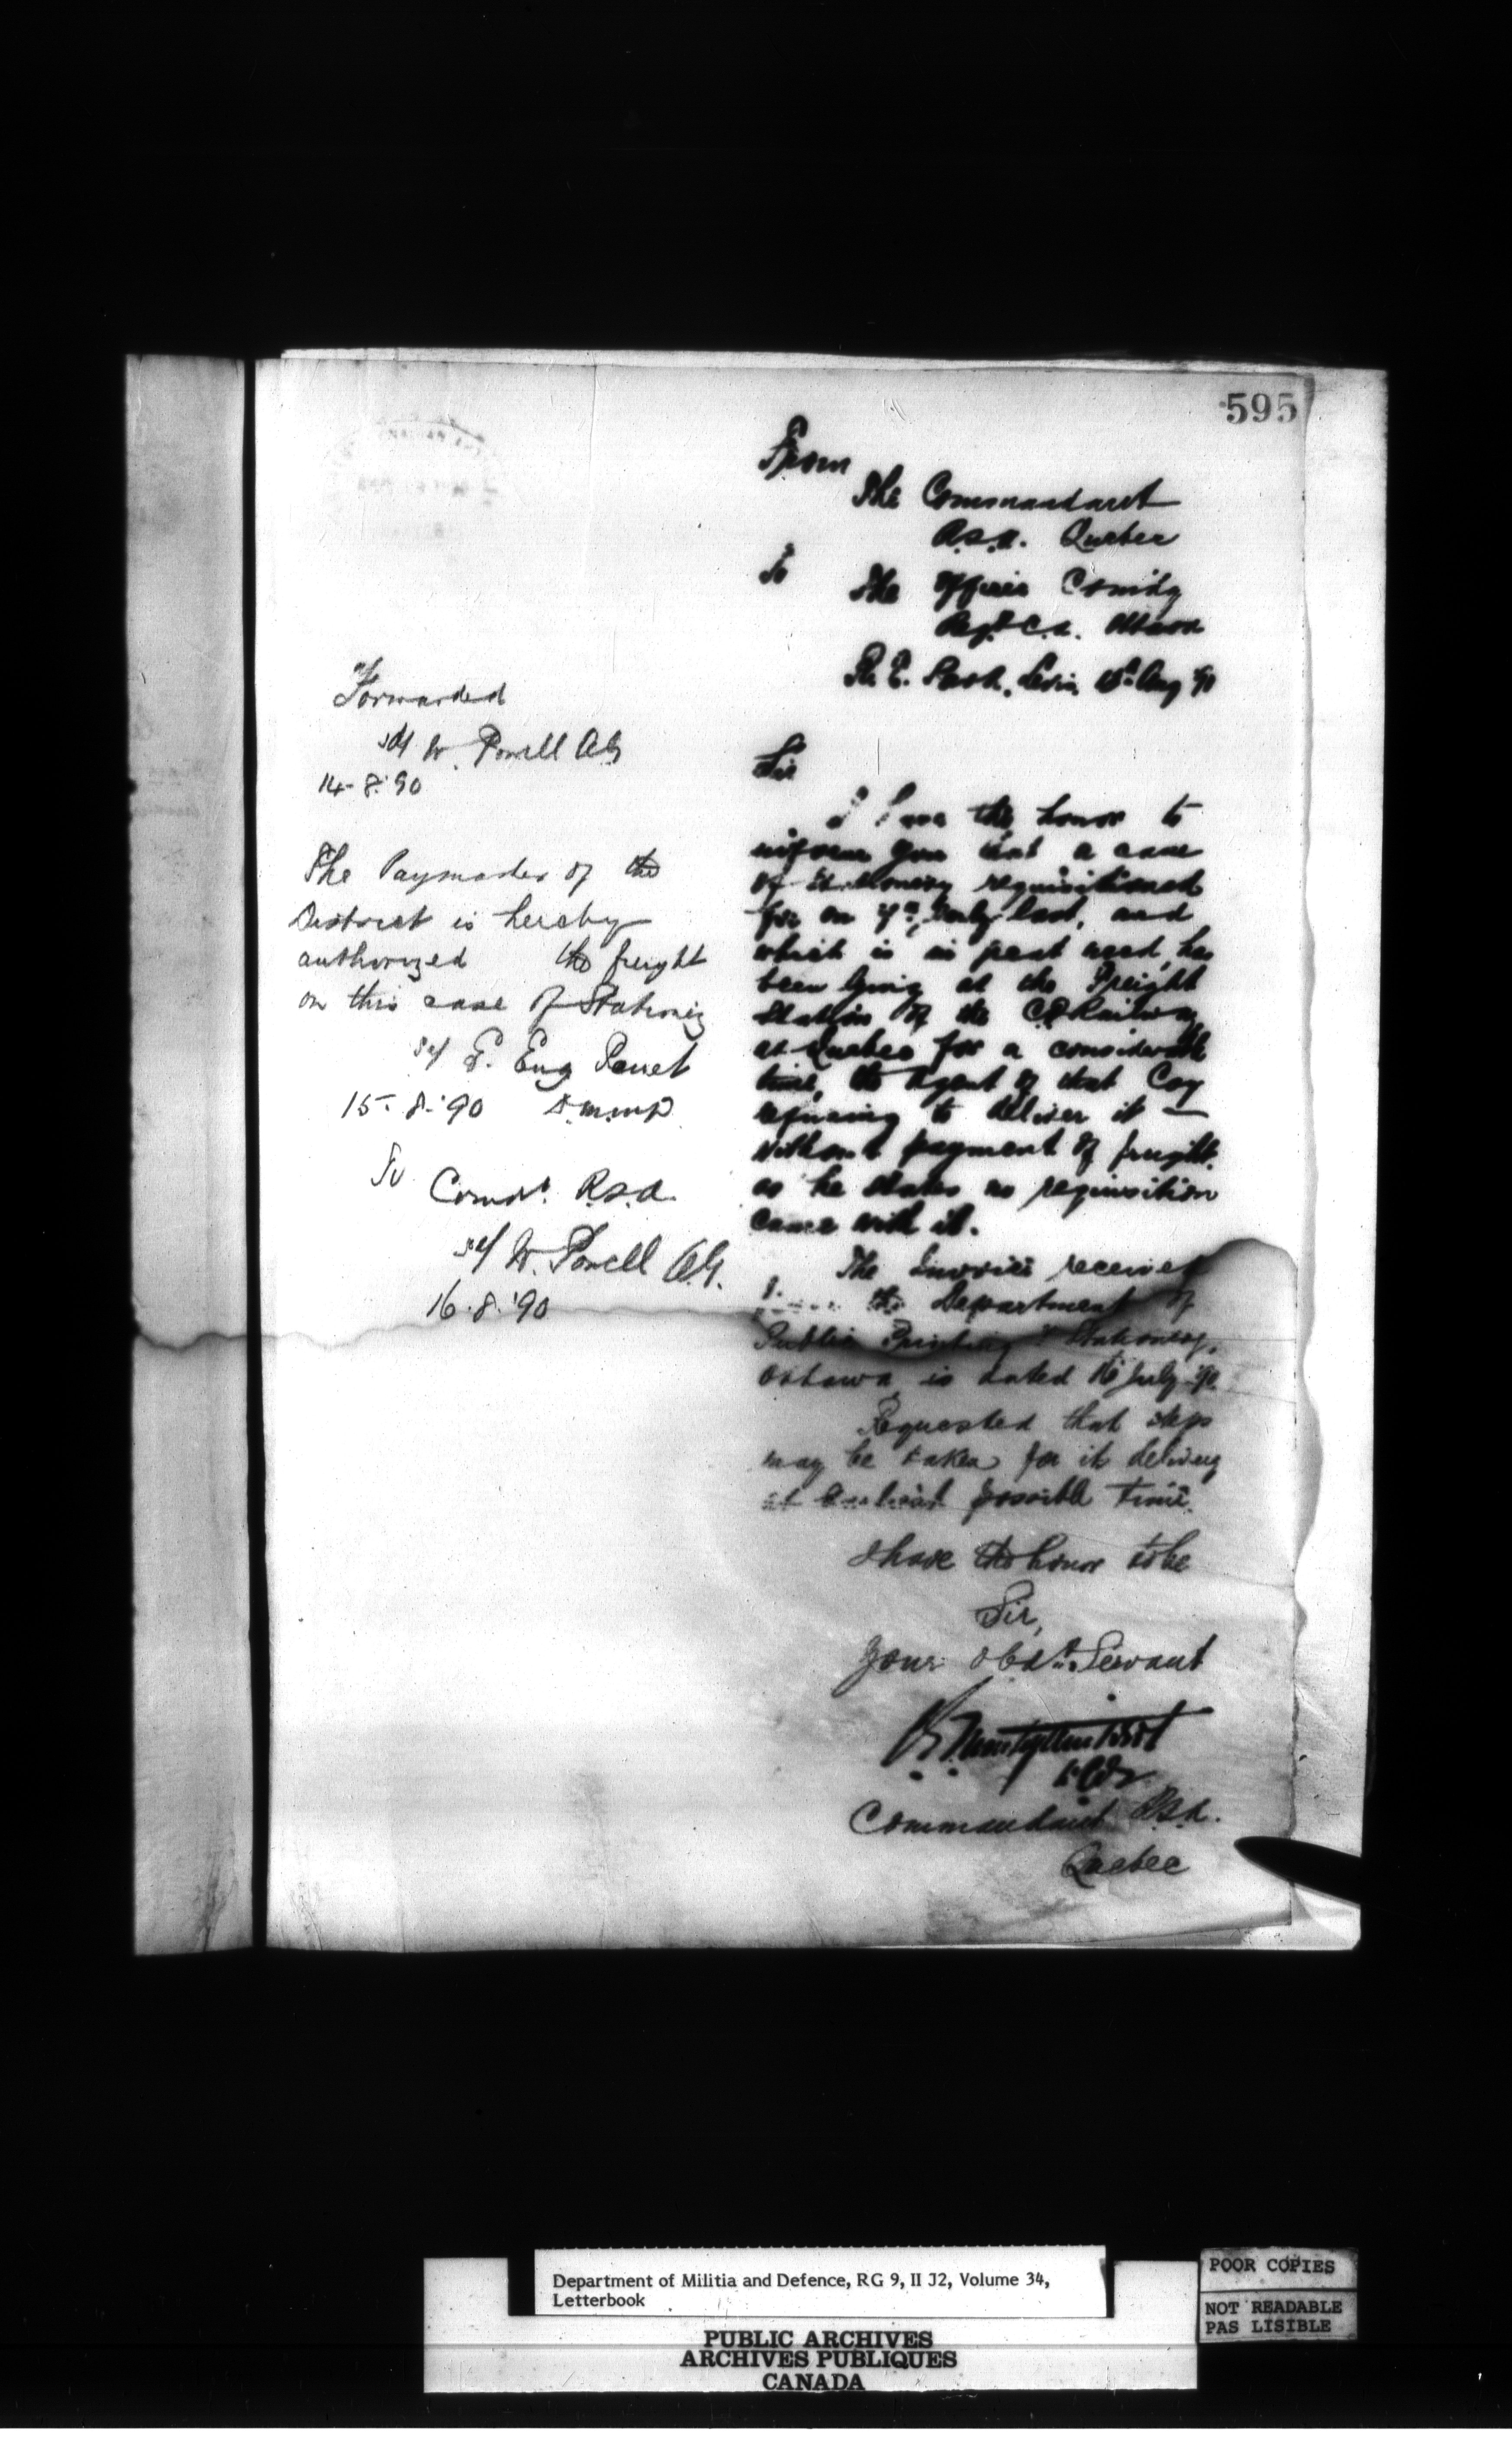 595
From
The Commandant
R.S.A. Quebec
To
The Officer Comdg
Regt C.A. Ottawa
Levis Aug '90
Sir
I have the honor to
inform you that a case
of Stationery requisitioned
for on July last, and
which is in great need, has
been lying at the Freight
Station of the C.P. Railway
at Quebec for a considerable
time, the Agent of that Coy
refusing to deliver it —
without payment of freight.
as he states no requisition
came with it.
The Invoice received
from the Department of
Public Printing & Stationery,
Ottawa, is dated July '90
Requested that steps
may be taken for it delivery
at possible time.
I have the honor to be
Sir,
Your Obdt Servant
Commandant R.S.A.
Quebec
Forwarded
sd/ W. Powell AG
14-8-'90
The Paymaster of the
District is hereby
authorized the freight
on this case of Stationery
sd/ Eug Panet
15-8-'90 D.M.M&D.
To
Comdt. R.S.A.
sd/ W. Powell AG.
16.8.'90
Department of Militia and Defence, RG 9, II J2, Volume 34,
Letterbook
PUBLIC ARCHIVES
ARCHIVES PUBLIQUES
CANADA
POOR COPIES
NOT READABLE
PAS LISIBLE